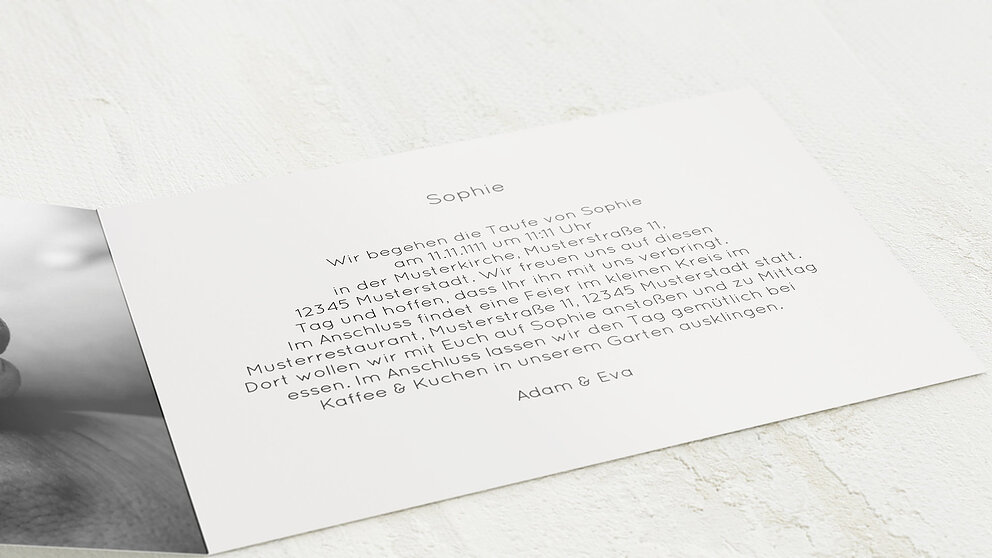 Sophie
Wir begehen die Taufe von Sophie
am 11.11.1111 um 11:11 Uhr
in der Musterkirche, Musterstraße 11,
12345 Musterstadt. Wir freuen uns auf diesen
Tag und hoffen, dass Ihr ihn mit uns verbringt.
Im Anschluss findet eine Feier im kleinen Kreis im
Musterrestaurant, Musterstraße 11, 12345 Musterstadt statt.
Dort wollen wir mit Euch auf Sophie anstoßen und zu Mittag
essen. Im Anschluss lassen wir den Tag gemütlich bei
Kaffee & Kuchen in unserem Garten ausklingen.
Adam & Eva